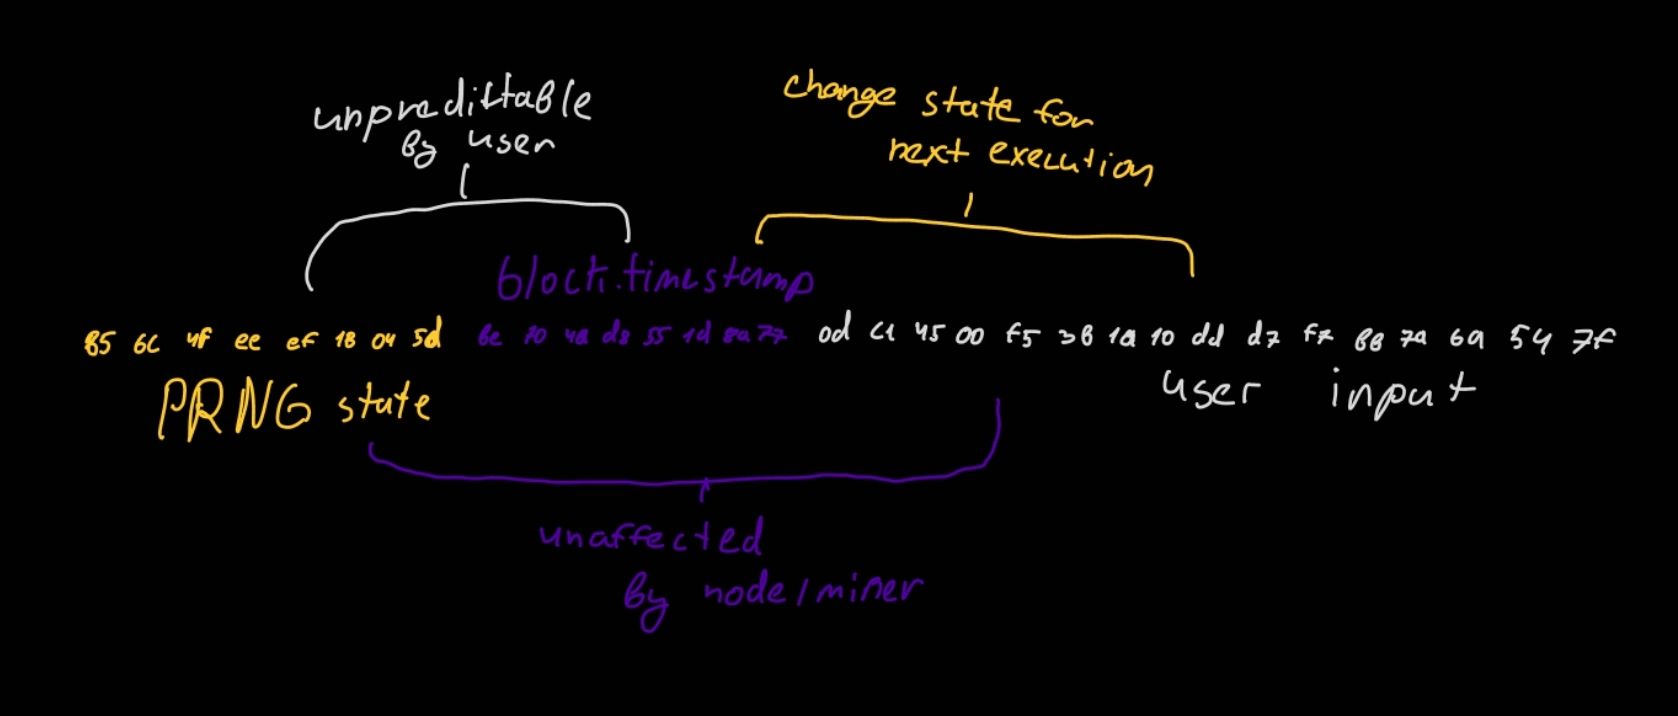 unpredictable
by user
change state for
next execution
block.timestamp
85 6c 4f ee ef 18 04 5d be 70 4a d8 55 1d 8a 77 0d c1 45 00 f5 38 1a 10 dd d7 f7 88 7a 6a 54 7f
PRNG state
user input
unaffected
by node/miner